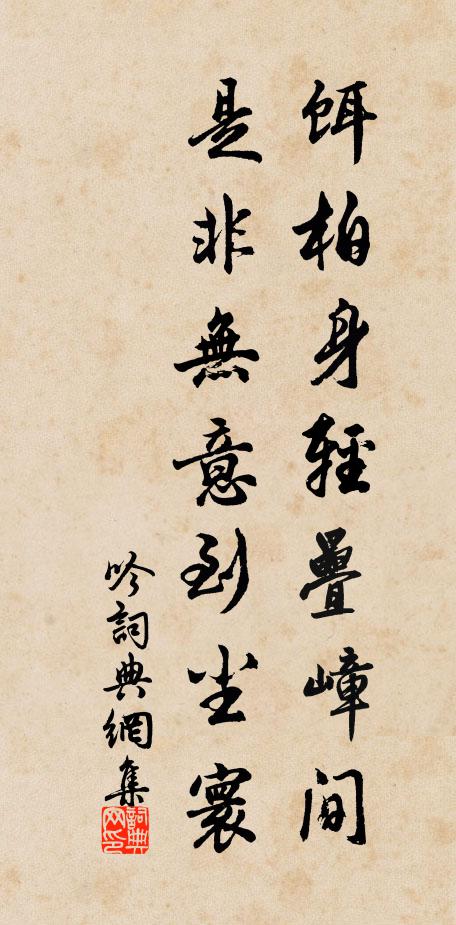 餌柏身輕疊嶂間
是非無意到尘寰
吟詞典網集
詞典網印